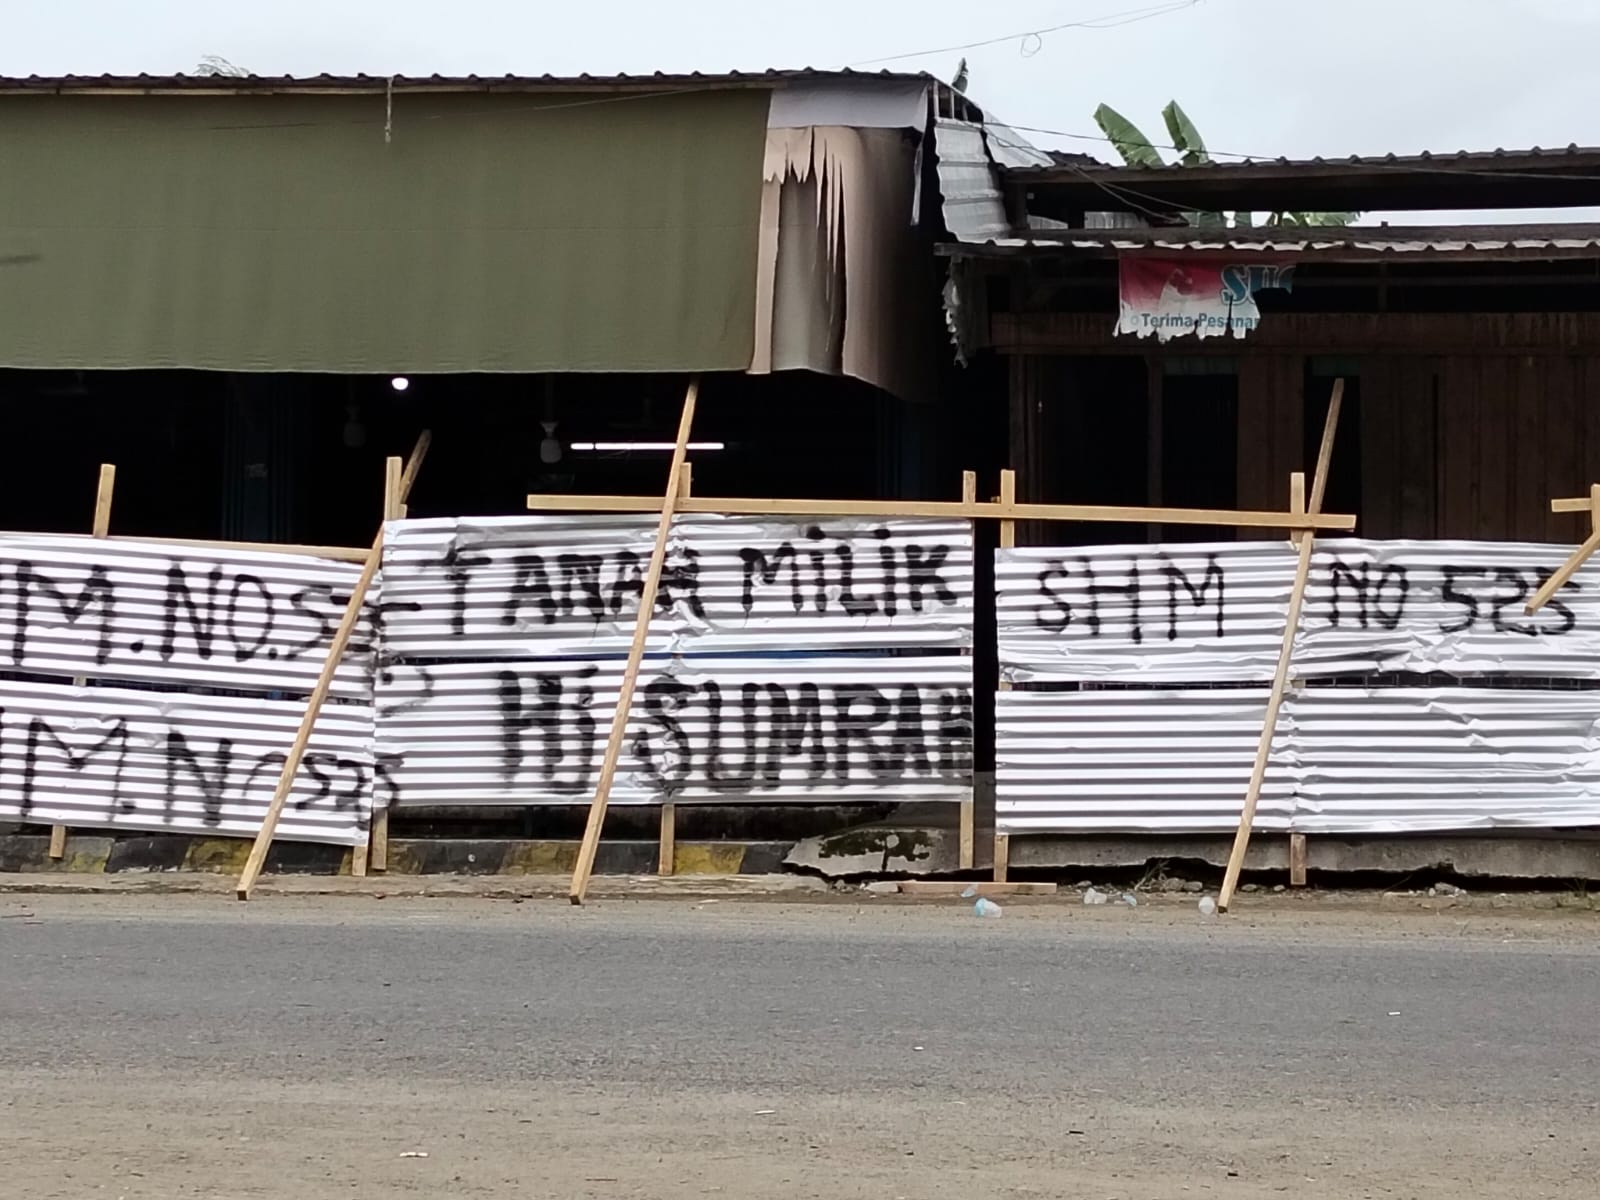 SU
Terima Pesanan
M.NO.525
M.NO525
TANAH MILIK
Hj SUMRAH
SHM NO 525